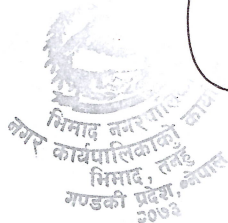 भिमाद नगरपालिका
नगर कार्यपालिकाको कार्या
भिमाद, तनहुँ
गण्डकी प्रदेश, नेपाल
२०७३